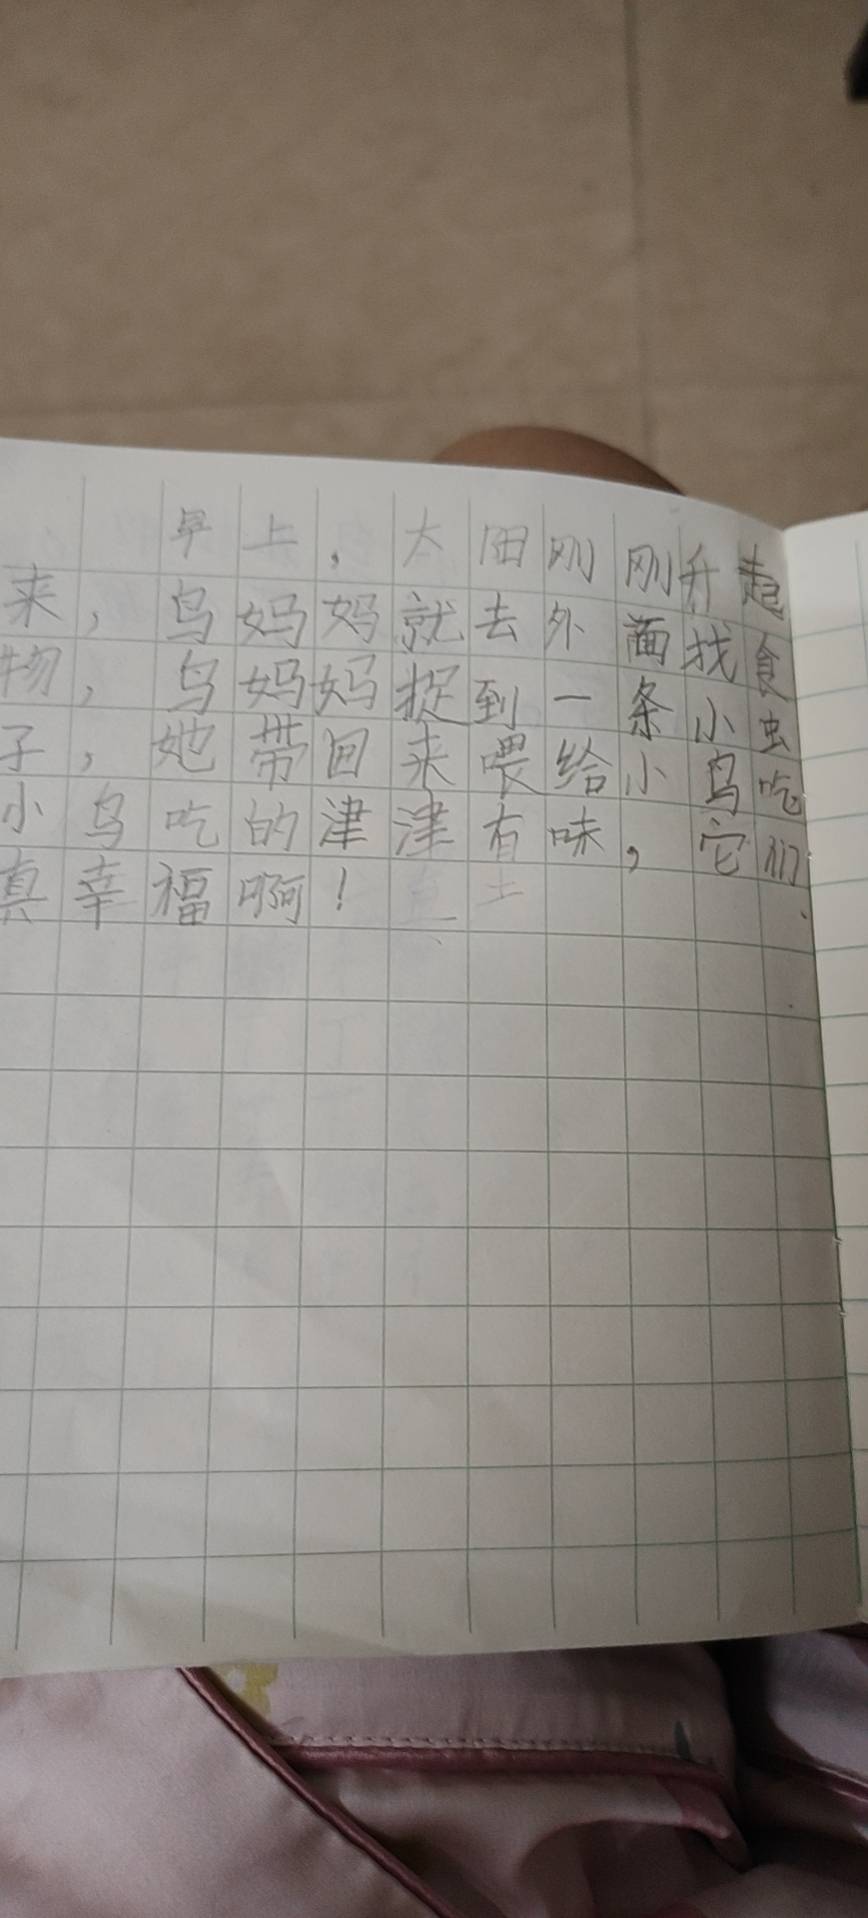 早上，太阳刚刚升起
来，鸟妈妈就去外面找食
物，鸟妈妈捉到一条小虫
子，她带回来喂给小鸟吃
小鸟吃的津津有味，它们
真幸福啊！